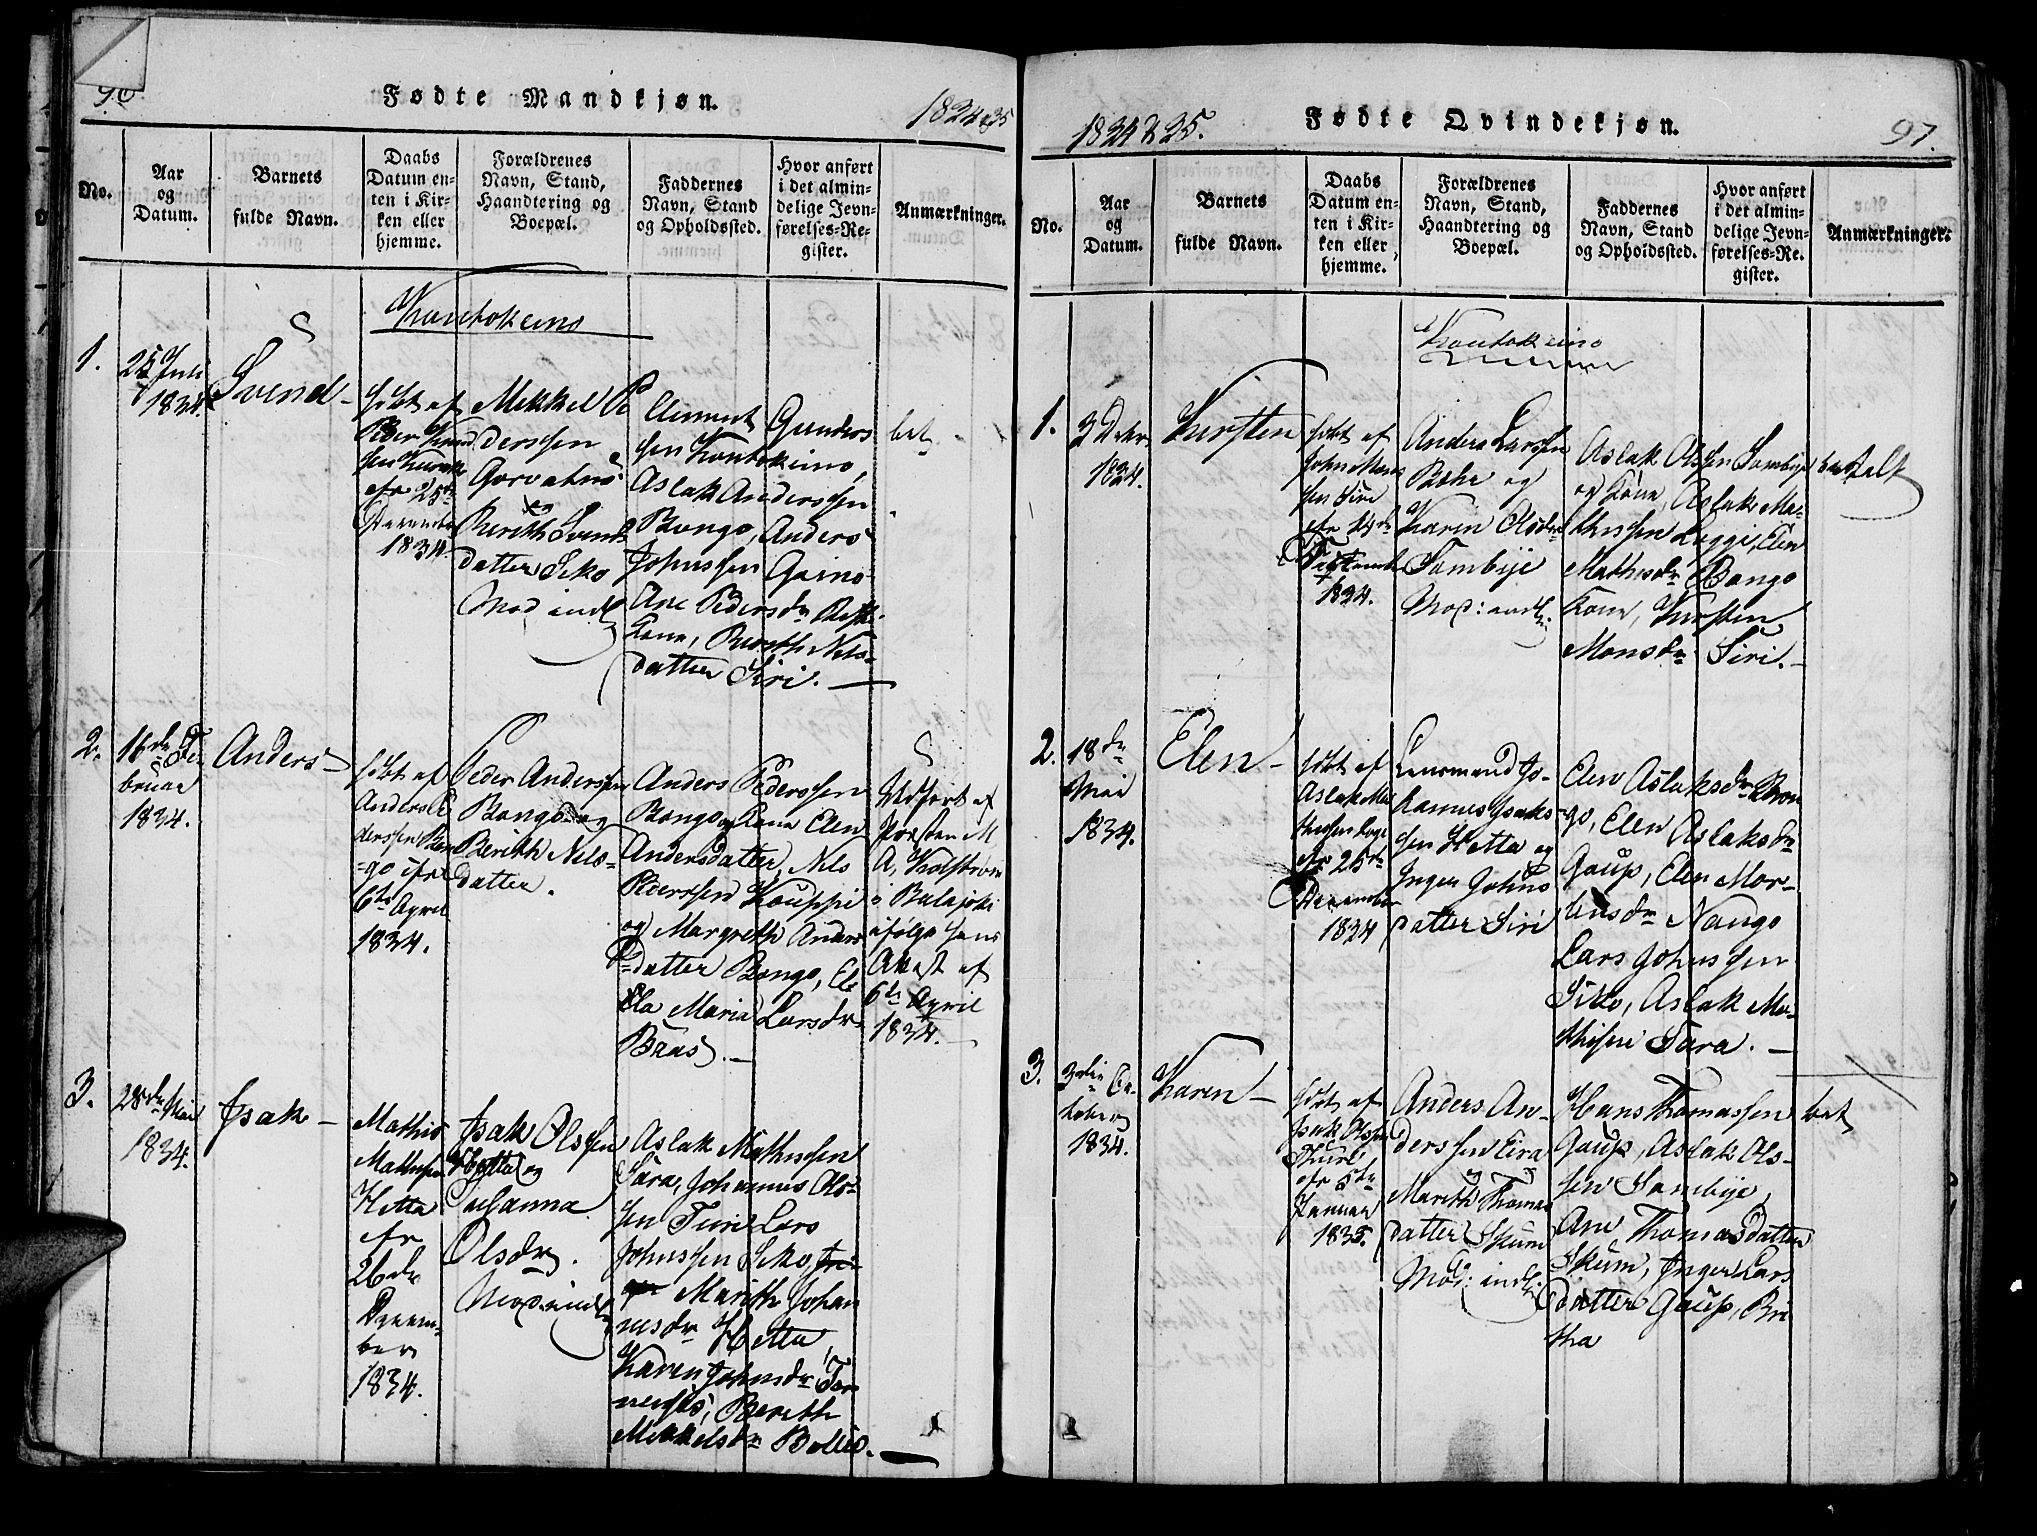 96
Fødte Mandkjøn.
1834 & 35
No.
Aar
og
Datum.
Barnets
fulde Navn.
Daabs
Datum en-
ten i Kir-
ken eller
hjemme.
Forældrenes
Navn, Stand,
Haandtering og
Boepæl.
Faddernes
Navn, Stand
og Opholdssted.
Hvor anført
i det almin-
delige Jevn-
førelses-Re-
gister.
Anmærkninger.
Koutokeino
1.
25 Juli
1834.
Svend
hibt af
Peder
25de
December
1834.
Mikkel Pe
derssen
Berith Svends
datter Siko
Mod indl
Clement Gunders
sen Koutokeino,
Aslak Anderssen
Bongo, Anders
Johnssen Gaino
Ane Pedersdr
Kone, Berith Nils-
datter Siri.
bet
2.
16de Fe
bruar
1834.
Anders
hibt af
Anders Pe
derssen Bon
go
6te April
1834.
Peder Anderssen
Bongo og
Berith Nils-
datter.
Anders Pederssen
Bongo og Kone Elen
Andersdatter, Nils
Pederssen Kouppi
og Margreth Anders
datter Bongo, El
la Maria Larsdr
Bras.
Udført af
A, Kolstrøm
i Palajoki
ifølge hans
Attest af
6te April
1834.
3.
28de Mai
1834.
Isak
Mathis
Mathisen
Hetta
26de
Decem-
ber
1834.
Isak Olssen
Hetta og
Susanna
Olsdr.
Mod indl
Aslak Mathissen
Sara, Johannes Ols-
sen Turi Lars
Johnssen Siko,
Marith Johan
nesdr Hetta,
Karen Johnsdr
Berith
Mikkelsdr
1834 & 35.
Fødte Qvindekjøn.
97.
No.
Aar
og
Datum.
Barnets
fulde Navn.
Daabs
Datum en-
ten i Kir-
ken eller
hjemme.
Forældrenes
Navn, Stand,
Haandtering og
Boepæl.
Faddernes
Navn, Stand
og Opholdssted.
Hvor anført
i det almin-
delige Jevn-
førelses-Re-
gister.
Anmærkninger.
Koutokeino
1.
1834.
Kirsten
hibt af
John Mons
sen Siri
14de
September
1834.
Anders Larssen
Bæhr og
Karen Olsdr
Sombije
Mod: indl.
Aslak Olssen Sombije
og Kone, Aslak Ma-
thissen Loggi, Elen
Mathisdr Bongo
Kone, Kirsten
Monsdr Siri.
betalt
2.
18de
Mai
1834.
Elen
hibt af
Aslak Ma
thissen Logi
25de
December
1834
Lensmand Jo-
hannes Isaks-
sen Hetta og
Inger Johns
datter Siri
Elen Aslaksdr Bon
go, Elen Aslaksdr
Gaup, Elen Mor-
tensdr Nango
Lars Johnssen
Siko, Aslak Ma-
thisen Sara.
3.
3die Oc
tober
1834.
Karen
hibt af
Isak Olssen
Thuri
5te
Januar
1835.
Anders An-
derssen Eira
og
Marith Thomas
datter Skum
Mod: indl.
Hans Thomassen
Gaup, Aslak Ols-
sen Sombije,
Ane Thomasdatter
Skum, Inger Lars
datter Gaup, Bri
tha
bet